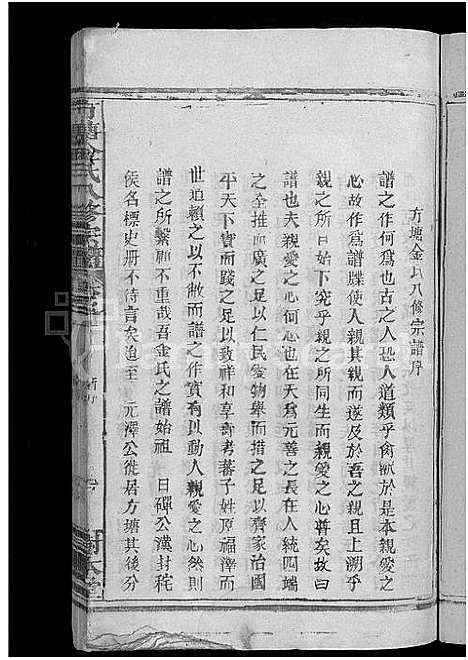 方塘金氏八修宗譜序
譜之作何爲也古之人恐人道類乎禽獸於是本親愛之
心故作爲譜牒使人親其親而遂及於吾之親且上溯乎
親之所自始下究乎親之所同生而親愛之心普矣故曰
譜也夫親愛之心何心也在天爲元善之長在人統四端
之全推而廣之足以仁民愛物舉而措之足以齊家治國
平天下實而踐之足以致祥和享耆考蕃子姓厚福澤而
世道賴之以不敝而譜之作實有以動人親愛之心然則
譜之所繫顧不重哉吾金氏之譜始祖 日磾公漢封秺
侯名標史册不待言矣迨至 元澤公徙居方塘其後分
方塘金氏八修宗譜